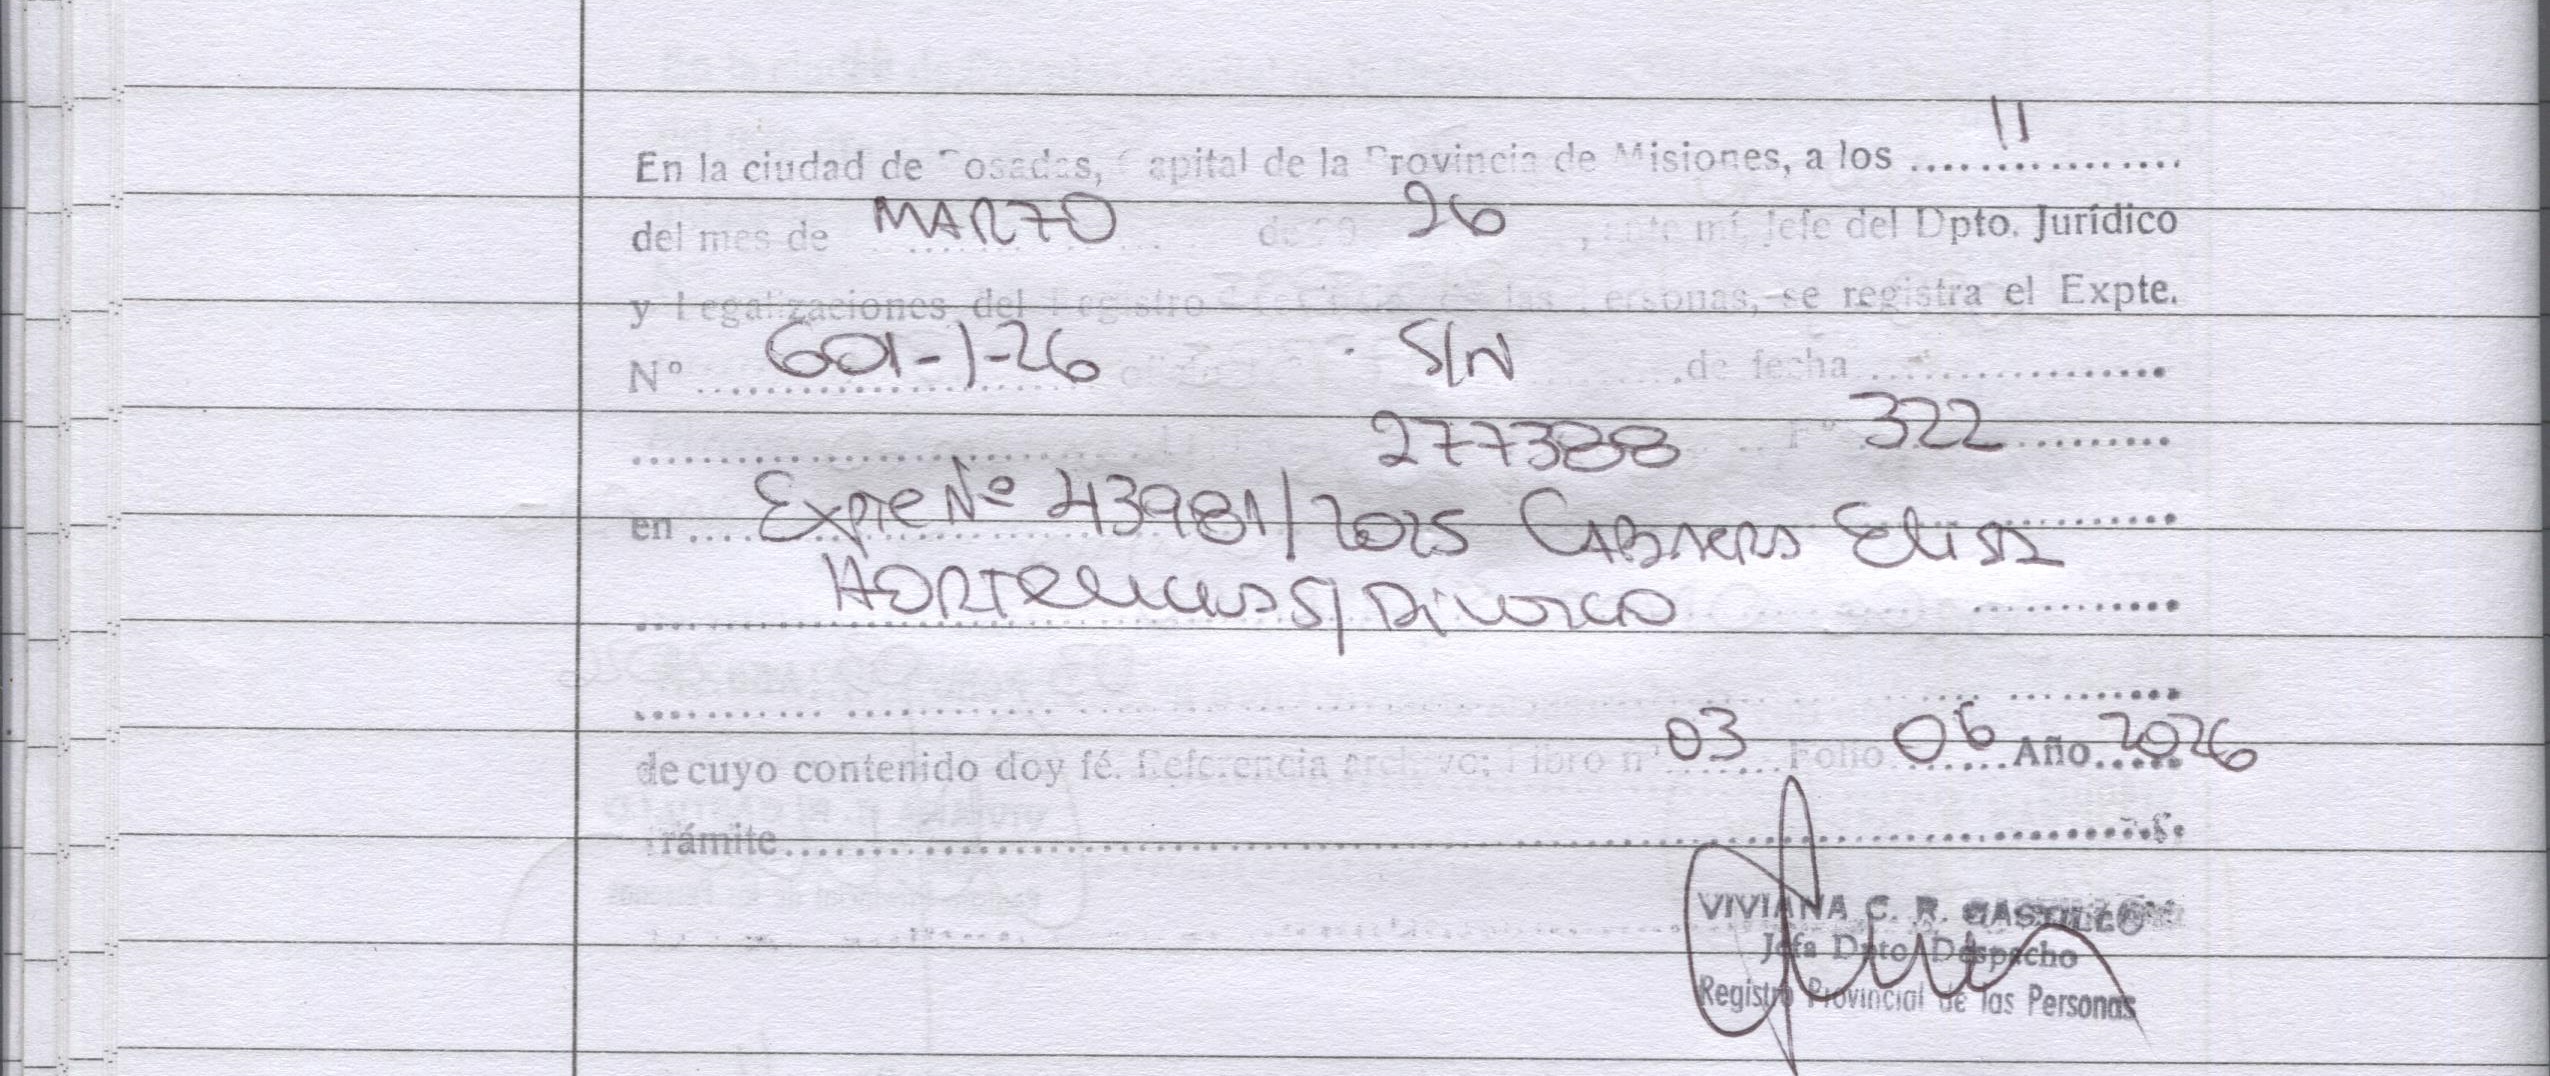 En la ciudad de Posadas, Capital de la Provincia de Misiones, a los 11
del mes de MARZO de 20 26, ante mí, Jefe del Dpto. Jurídico
y Legalizaciones del Registro de las Personas, se registra el Expte.
Nº 601-1-26 S/N de fecha
277388 Fº 322
en Expte Nº 43981/2025 CABRERA Elisa
HORTENCIA S/ Divorcio
de cuyo contenido doy fé. Referencia archivo: Libro nº 03 Folio 06 Año 2026
Trámite
VIVIANA C. R. CASTILLO
Jefa Dpto. Despacho
Registro Provincial de las Personas